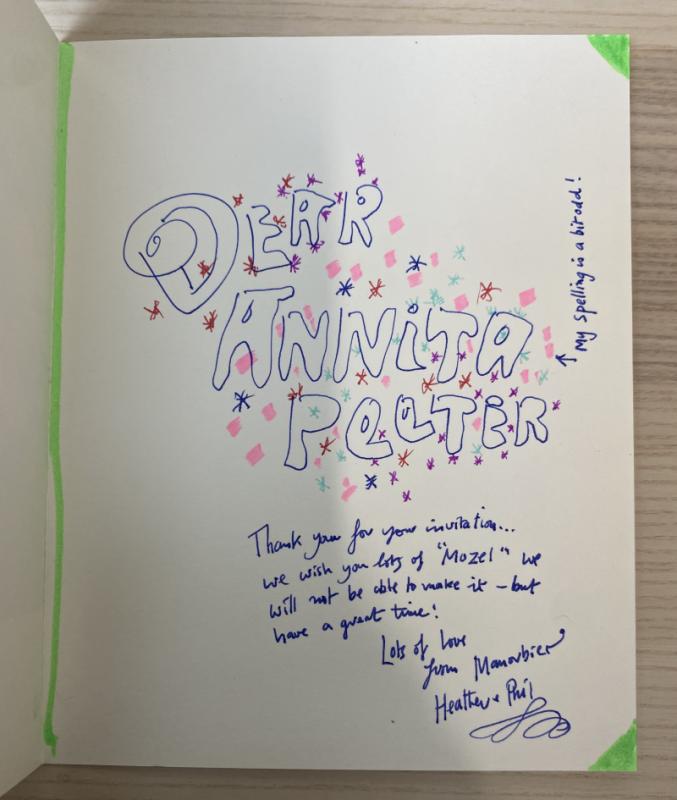 DEAR
ANNiTA
PEETER
My spelling is a bit odd!
Thank you for your invitation...
we wish you lots of "Mozel" we
will not be able to make it - but
have a great time!
Lots of Love
from Manorbier
Heather & Phil